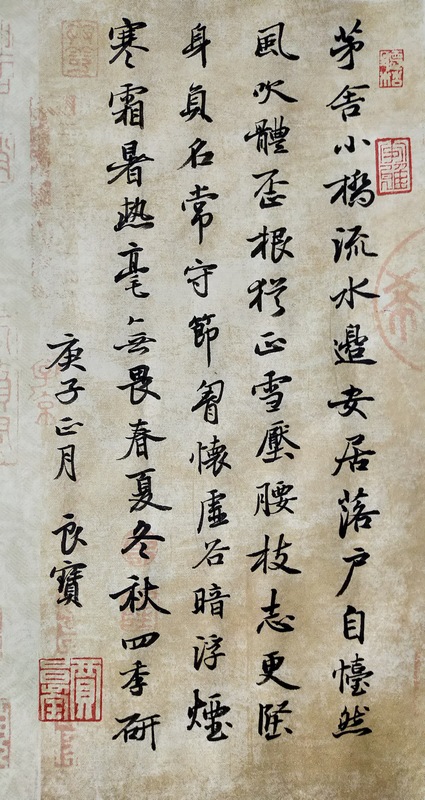 茅舍小橋流水邊安居落户自懛然
風吹體歪根猶正雪壓腰枝志更堅
身負名常守節胷懷虛谷暗浮煙
寒霜暑熱毫無畏春夏冬秋四季研
庚子正月 良寶